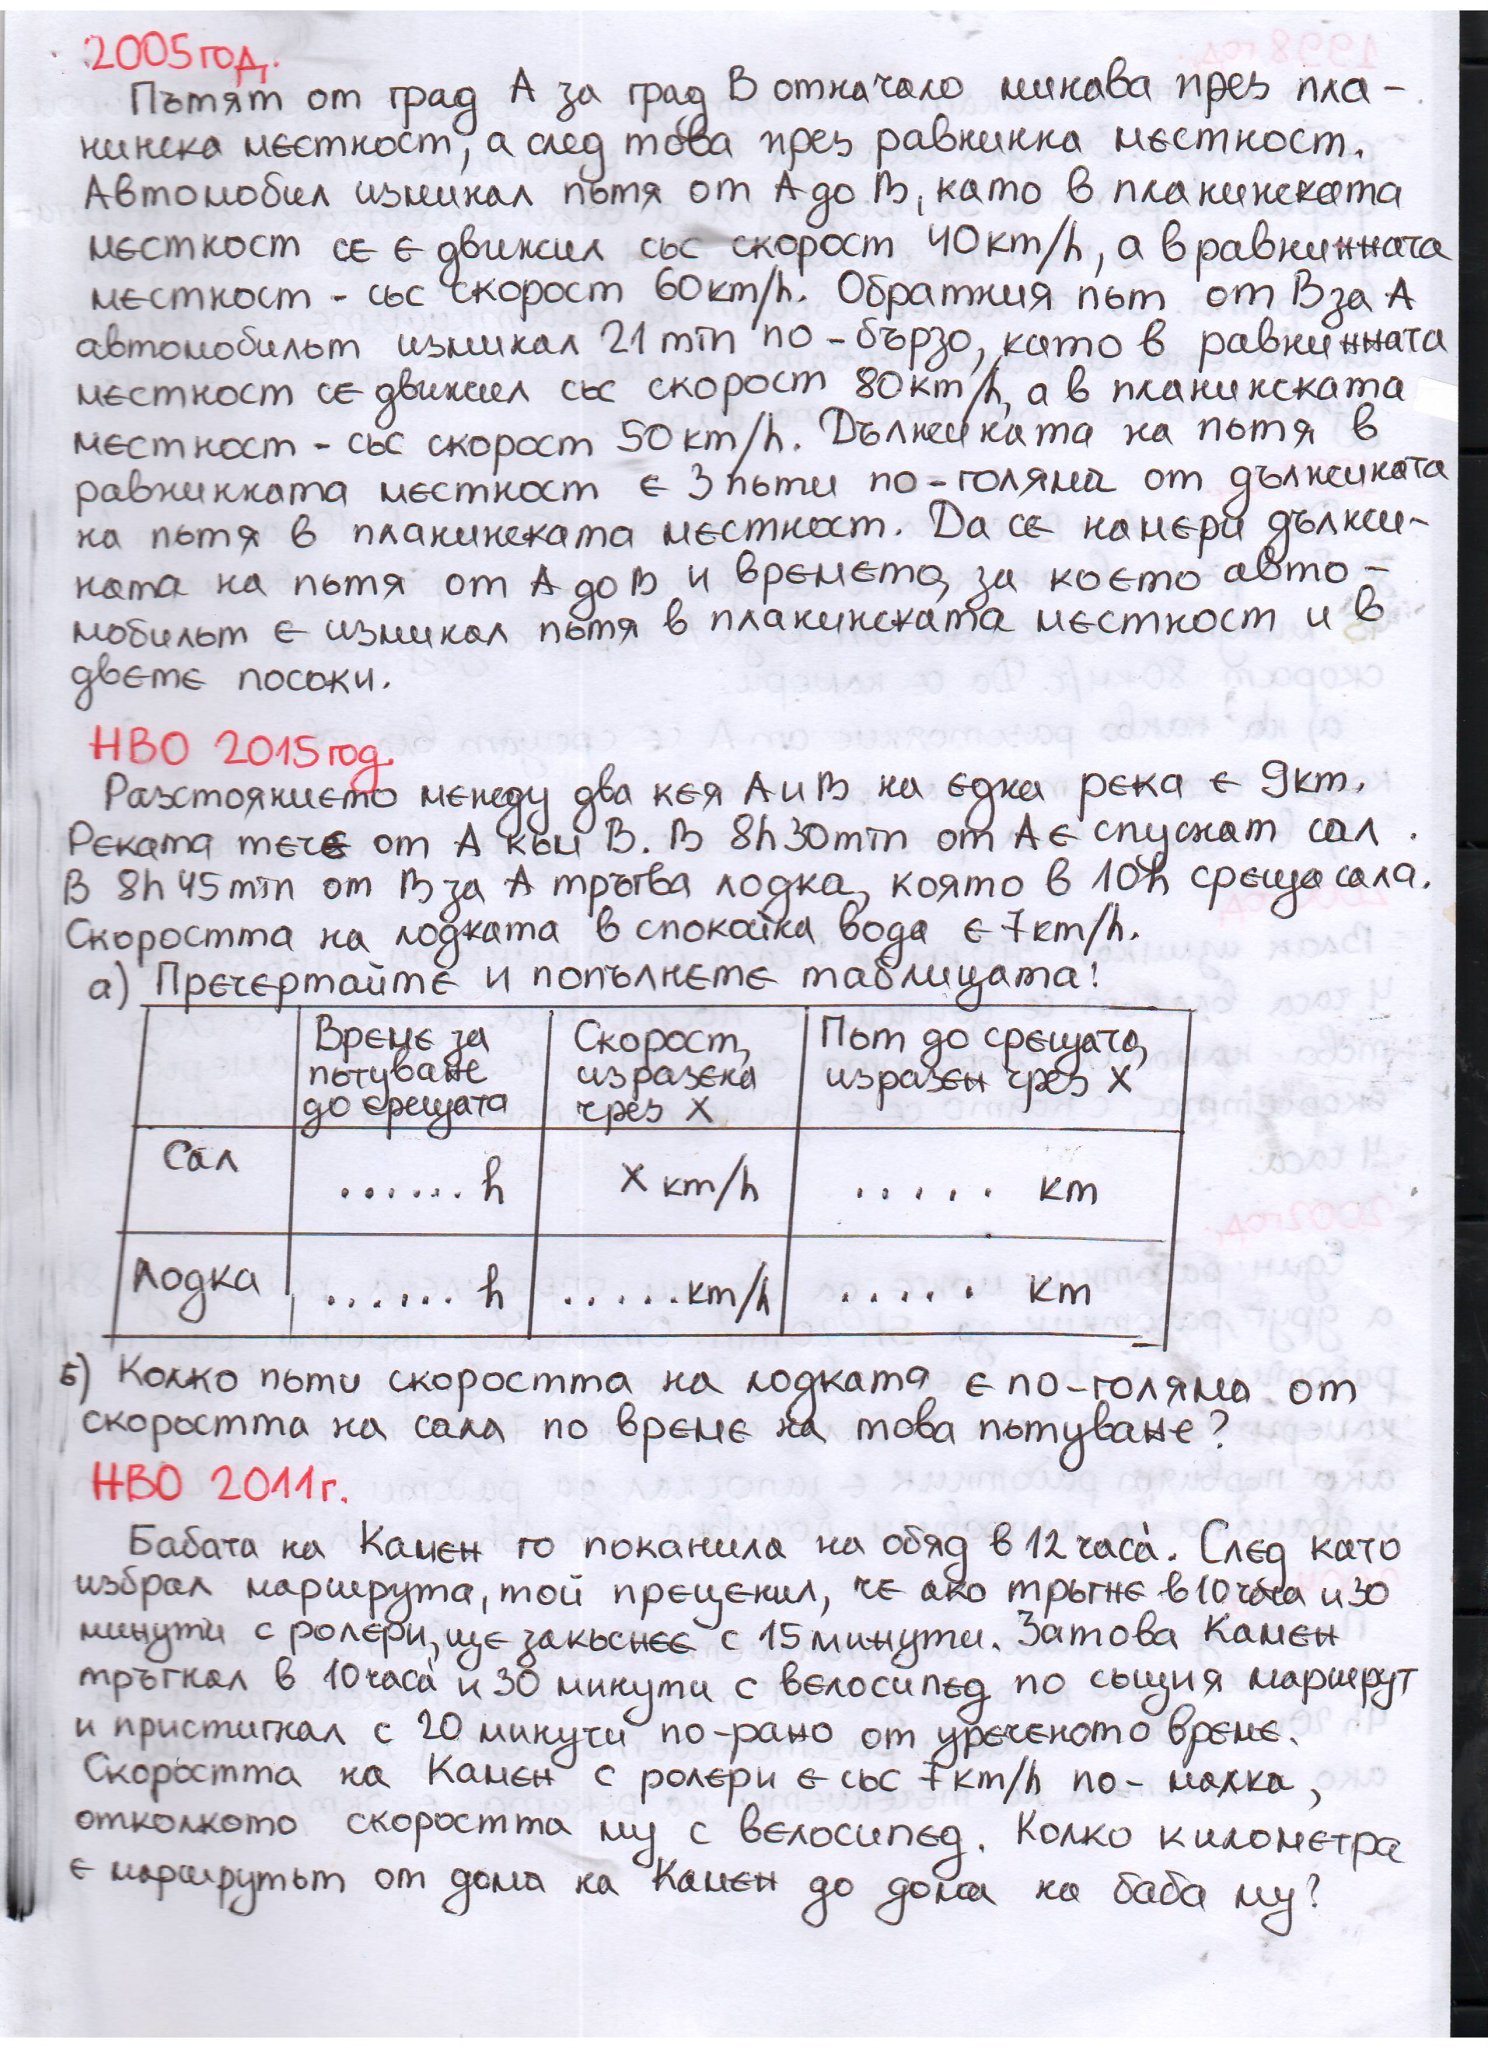 2005 год.
Пътят от град А за град В отначало минава през пла-
нинска местност, а след това през равнинна местност.
Автомобил изминал пътя от А до В, като в планинската
местност се е движил със скорост 40 km/h, а в равнинната
местност - със скорост 60 km/h. Обратния път от В за А
автомобилът изминал 21 min по-бързо, като в равнинната
местност се движил със скорост 80 km/h, а в планинската
местност - със скорост 50 km/h. Дължината на пътя в
равнинната местност е 3 пъти по-голяма от дължината
на пътя в планинската местност. Да се намери дължи-
ната на пътя от А до В и времето, за което авто-
мобилът е изминал пътя в планинската местност и в
двете посоки.
НВО 2015 год.
Разстоянието между два кея А и В на една река е 9 km.
Реката тече от А към В. В 8h 30 min от А е спуснат сал.
В 8h 45 min от В за А тръгва лодка, която в 10h среща сала.
Скоростта на лодката в спокойна вода е 7 km/h.
а) Пречертайте и попълнете таблицата!
Време за Скорост, Път до срещата,
пътуване изразена изразен чрез Х
до срещата чрез Х
Сал ...... h X km/h ..... km
Лодка ...... h ..... km/h ..... km
б) Колко пъти скоростта на лодката е по-голяма от
скоростта на сала по време на това пътуване?
НВО 2011 г.
Бабата на Камен го поканила на обяд в 12 часа. След като
избрал маршрута, той преценил, че ако тръгне в 10 часа и 30
минути с ролери, ще закъснее с 15 минути. Затова Камен
тръгнал в 10 часа и 30 минути с велосипед по същия маршрут
и пристигнал с 20 минути по-рано от уреченото време.
Скоростта на Камен с ролери е със 7 km/h по-малка,
отколкото скоростта му с велосипед. Колко километра
е маршрутът от дома на Камен до дома на баба му?